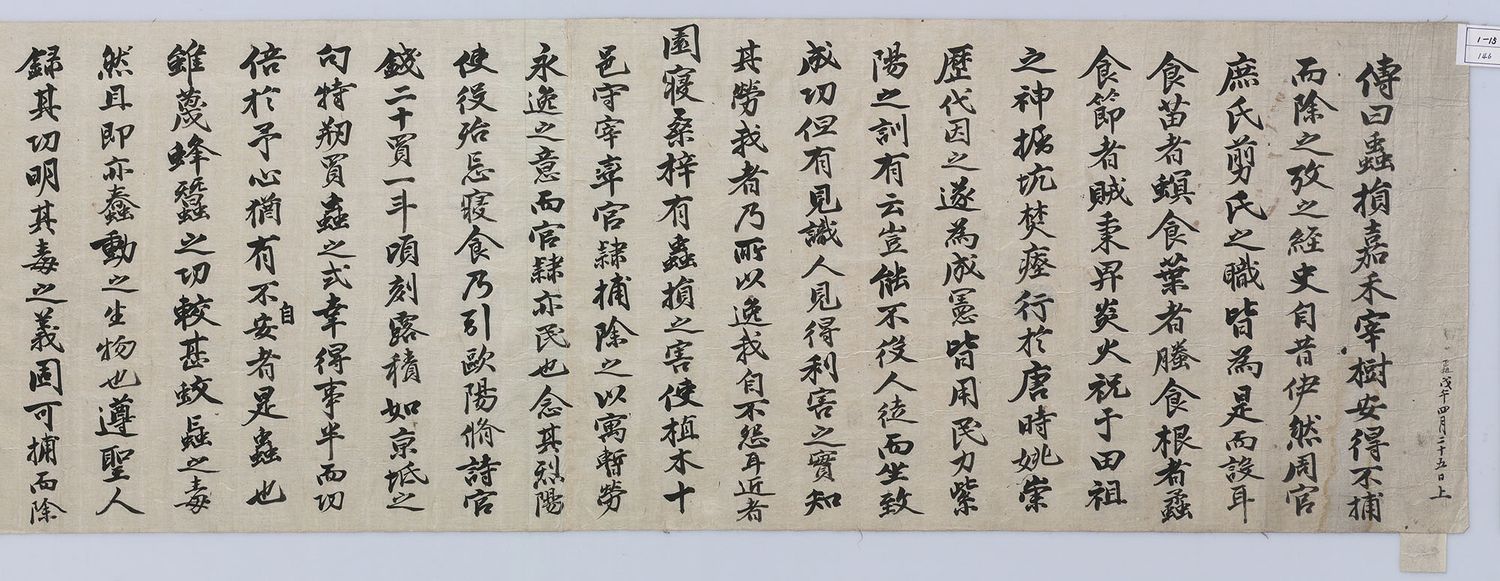 1-18
146
戊午四月二十五日上
傳曰蟲損嘉禾宰樹安得不捕
而除之攷之經史自昔伊然周官
庶氏剪氏之職皆爲是而設耳
食苗者螟食葉者螣食根者蟊
食節者賊秉畀炎火祝于田祖
之神掘坑焚瘞行於唐時姚崇
歷代因之遂爲成憲皆用民力紫
陽之訓有云豈能不役人徒而坐致
成功但有見識人見得利害之實知
其勞我者乃所以逸我自不怨耳近者
園寢桑梓有蟲損之害使植木十
邑守宰率官隸捕除之以寓暫勞
永逸之意而官隸亦民也念其烈陽
使役殆忘寢食乃引歐陽脩詩官
錢二十買一斗頃刻露積如京坻之
句特刱買蟲之式幸得事半而功
倍於予心猶有不自安者是蟲也
雖蔑蜂蠶之功較甚蚊蝱之毒
然且即亦蠢動之生物也遵聖人
錄其功明其毒之義固可捕而除